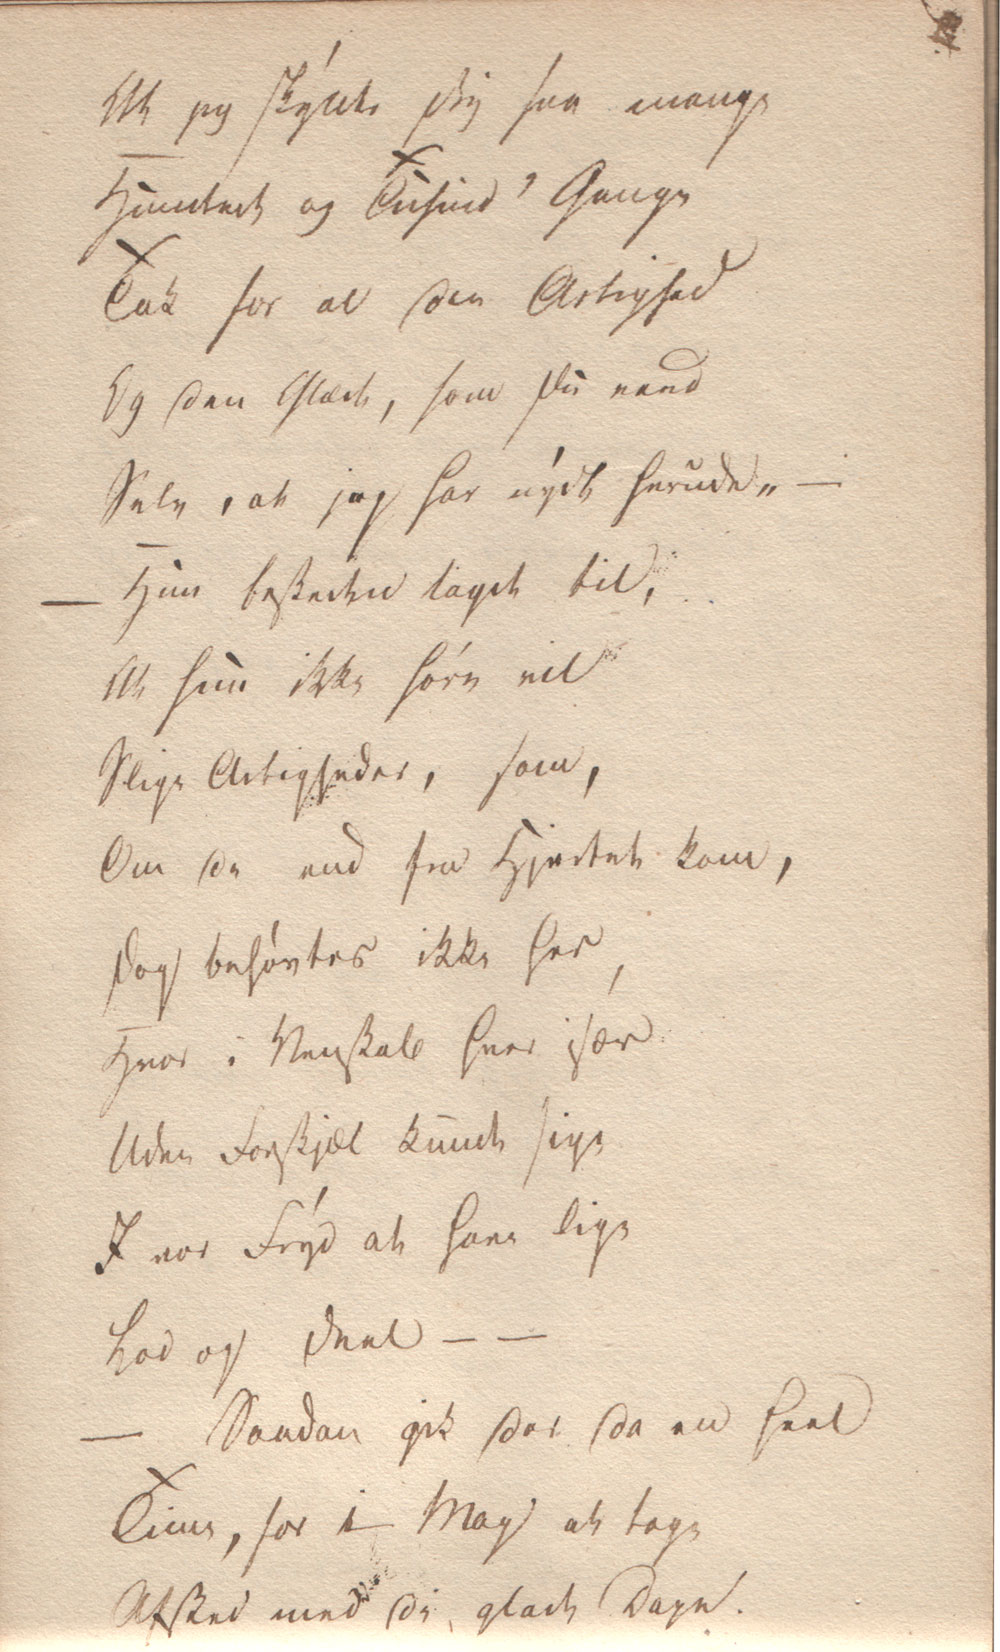 At jeg skylder Dig saa mange
Hundrede og Tusind' Gange
Tak for al den Artighed
Og den Glæde, som Du veed
Selv, at jeg har nydt herude„ —
— Hun beskeden lagde til,
At hun ikke høre vil
Slige Artigheder, som,
Om de end fra Hjertet kom,
Dog behøvtes ikke her,
Hvor i Venskab hver især
Uden Forskjæl kunde sige
I vor Fryd at have lige
Lod og Deel — —
— Saadan gik der da en heel
Time, for i Mag at tage
Afsked med de glade Dage.